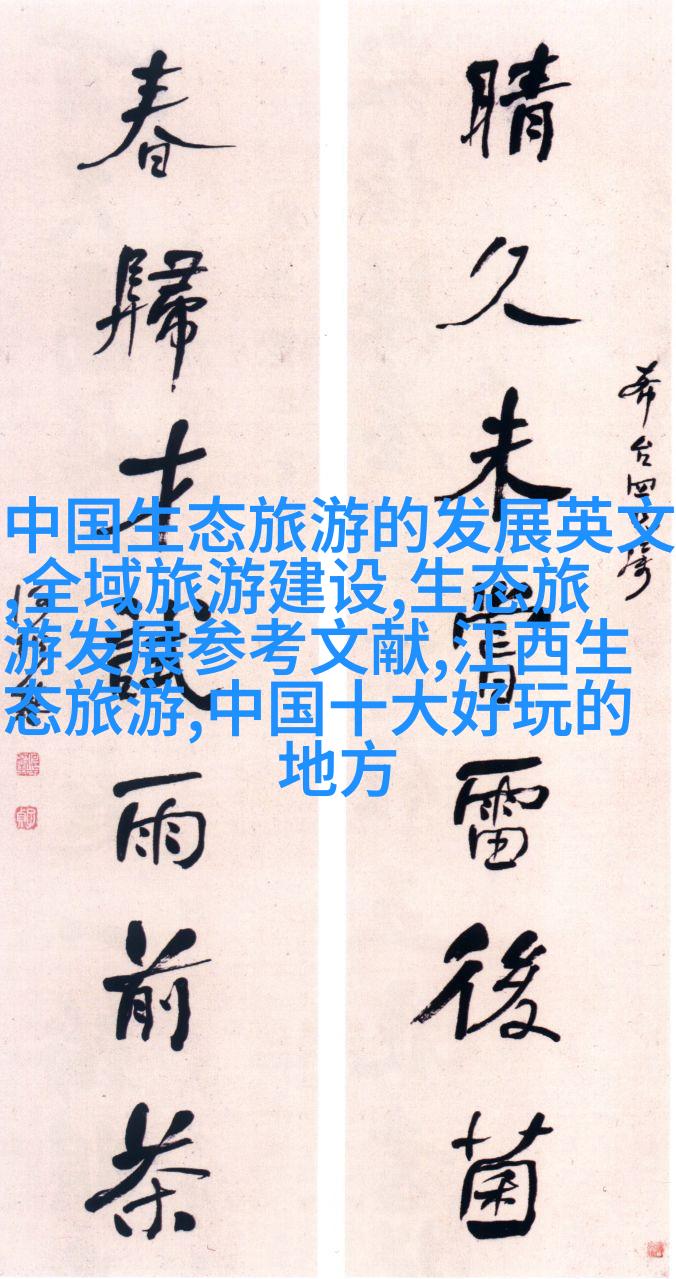 晴久未嘗雷後菌
春歸才試雨前茶
中国生态旅游的发展英文
,全域旅游建设,生态旅
游发展参考文献,江西生
态旅游,中国十大好玩的
地方